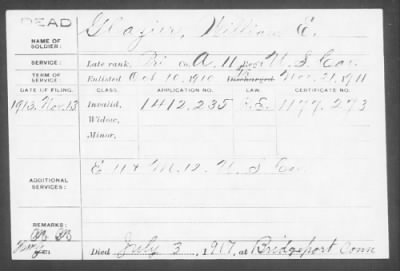 DEAD
NAME OF SOLDIER: Glazier, William E.
SERVICE: Late rank, Pri Co. A, 11 Reg't U.S. Cav.
TERM OF SERVICE: Enlisted Oct 10, 1910 Discharged Nov. 21, 1911
DATE OF FILING. CLASS. APPLICATION NO. LAW. CERTIFICATE NO.
1913. Nov. 13 Invalid, 1412.235 1177.273
Widow,
Minor,
ADDITIONAL SERVICES: E 11 & M. 12. U. S. Cav.
REMARKS:
Died July 3, 1917, at Bridgeport Conn